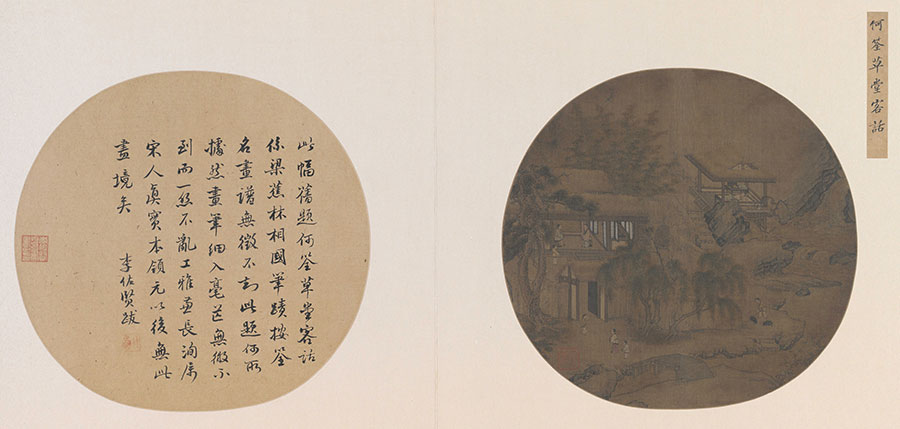 何筌草堂客話
此幅舊題何筌草堂客話
係梁蕉林相國筆蹟按筌
名畫譜無徵不知此題何所
據然畫筆細入毫芒無微不
到而一絲不亂工雅兼長洵屬
宋人真實本領元以後無此
畫境矣
李佐賢跋